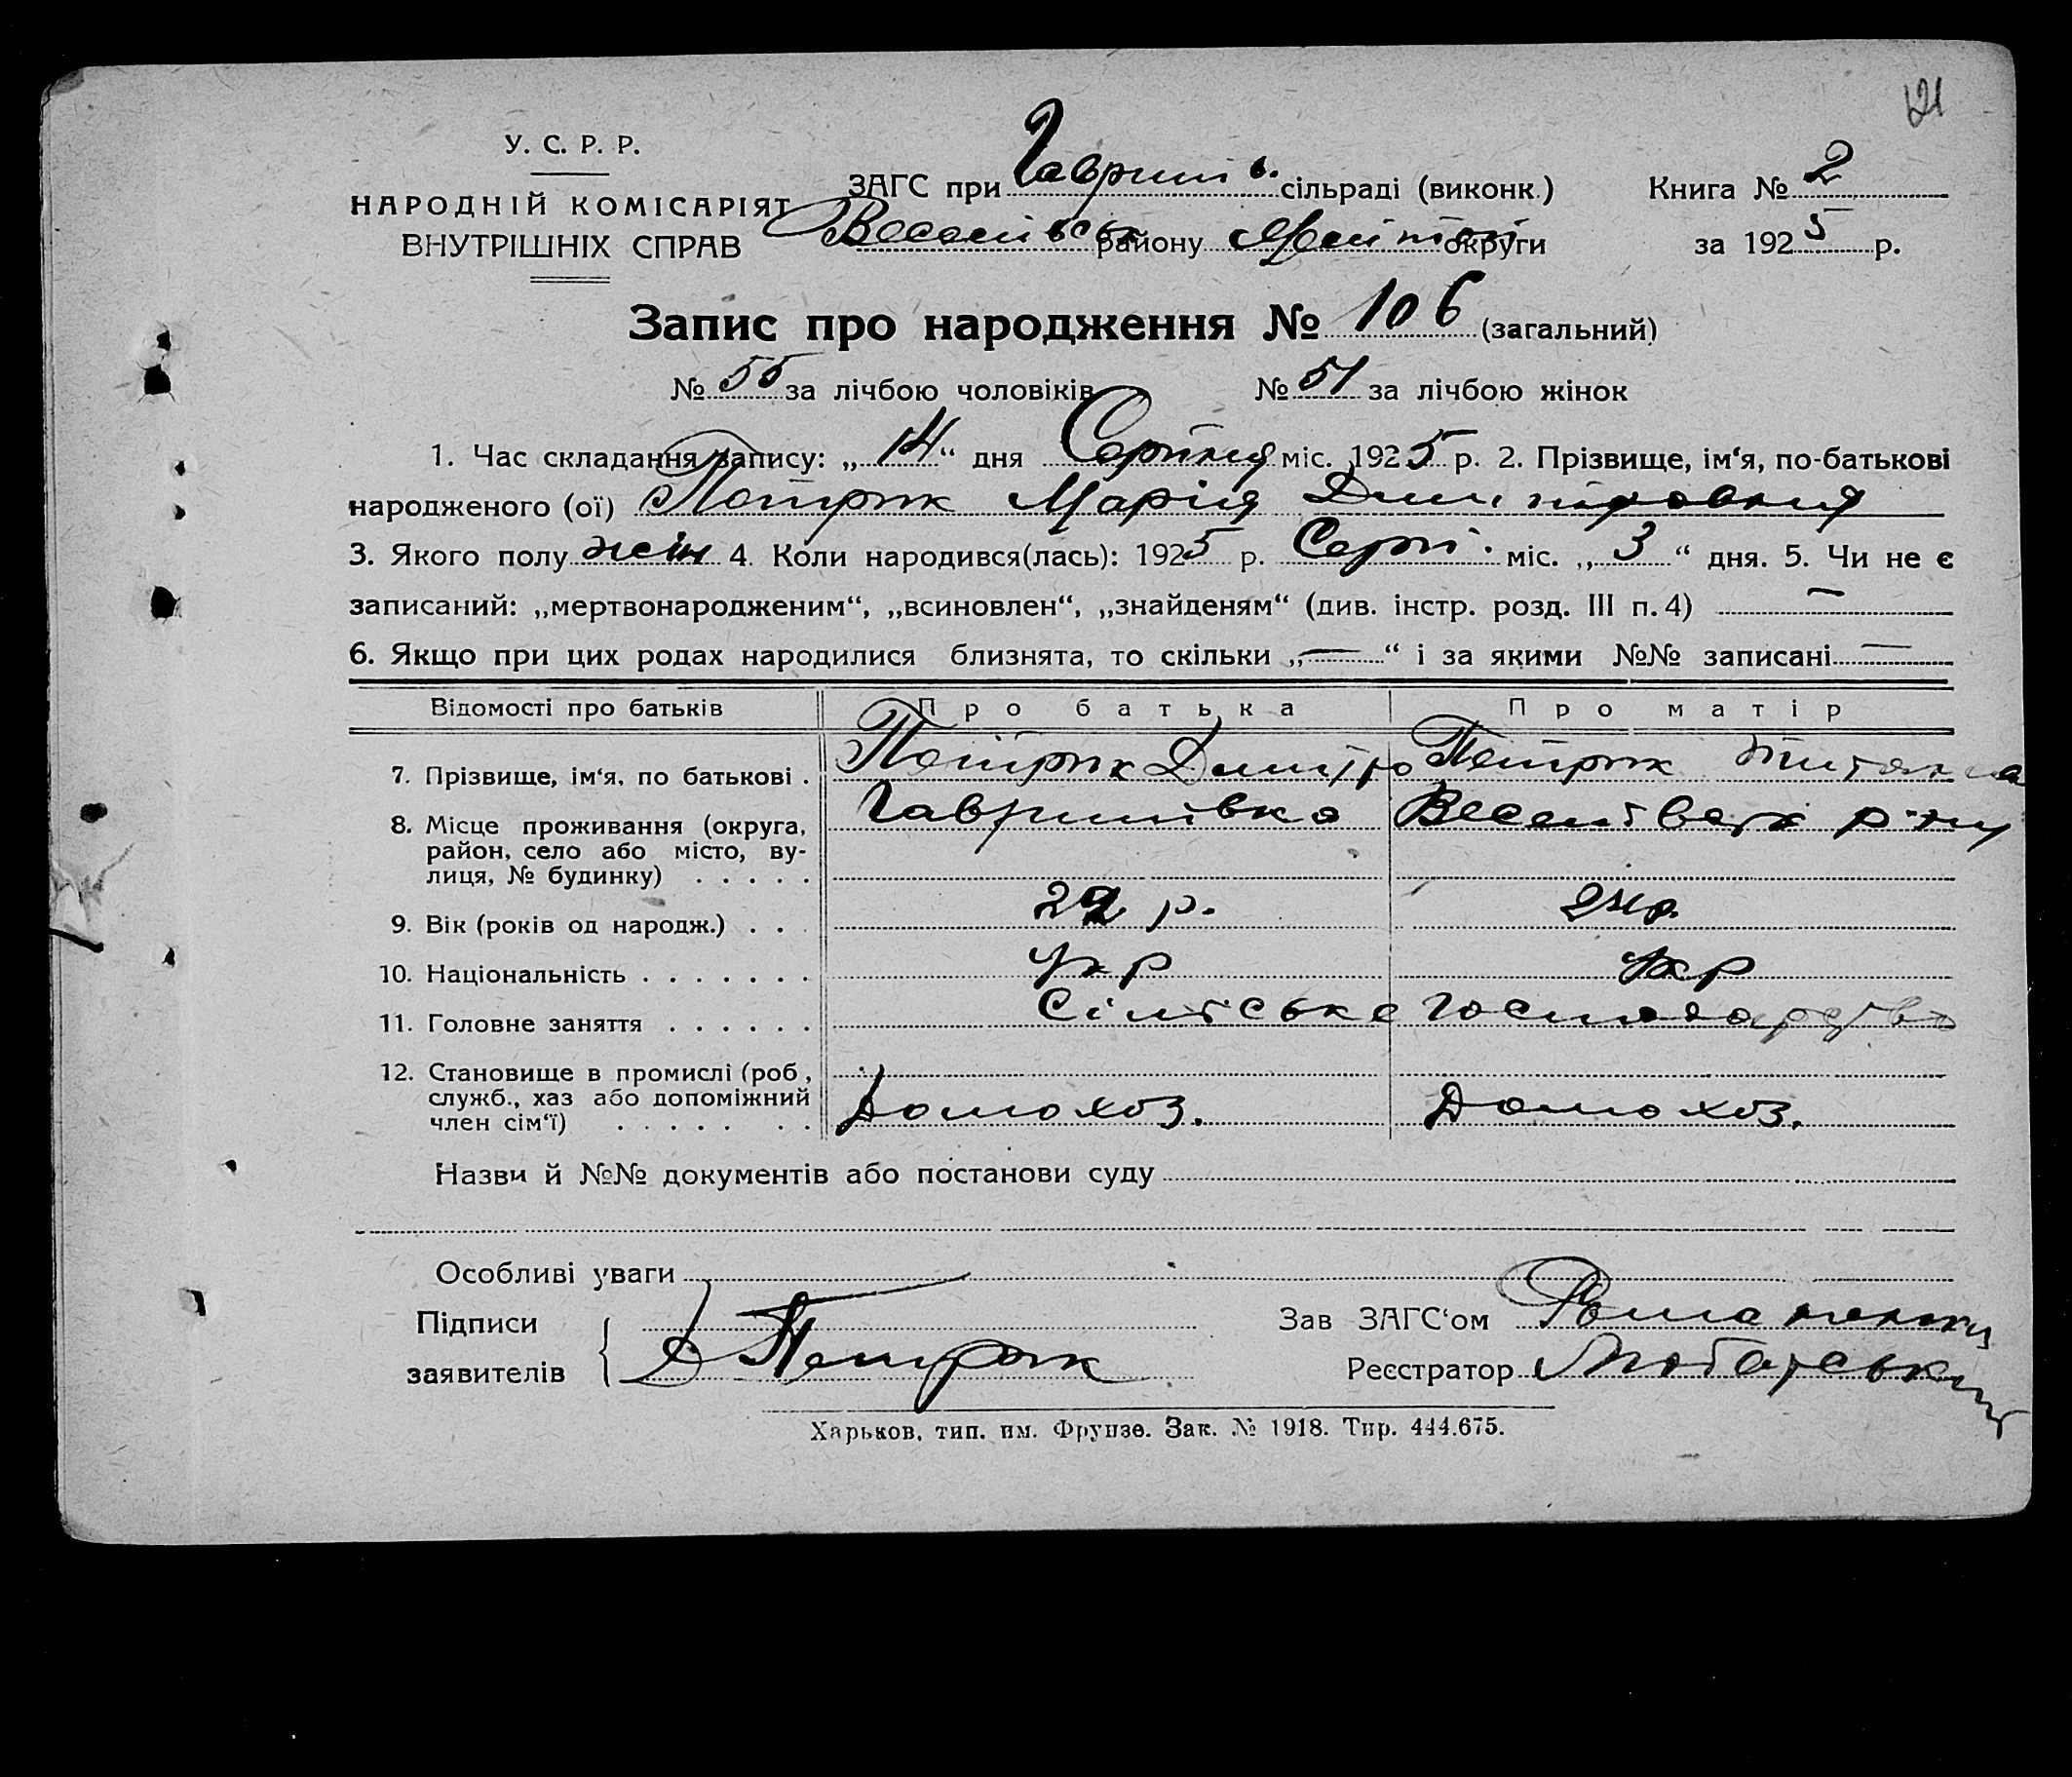 121
У. С. Р. Р.
НАРОДНІЙ КОМІСАРІЯТ
ВНУТРІШНІХ СПРАВ
ЗАГС при Гаврилів. сільраді (виконк.)
Книга № 2
района округи
за 1925 р.
Запис про народження № 106 (загальний)
№ 55 за лічбою чоловіків № 51 за лічбою жінок
1. Час складання запису: „14“ дня Серпня міс. 1925 р. 2. Прізвище, ім‘я, по-батькові
народженого (ої) Петрик Марія Дмитровна
3. Якого полу жін 4. Коли народився(лась): 1925 р. Серп. міс. „3“ дня. 5. Чи не є
записаний: „мертвонародженим“, „всиновлен“, „знайденям“ (див. інстр. розд. III п. 4) —
6. Якщо при цих родах народилися близнята, то скільки „—“ і за якими №№ записані —
Відомості про батьків Про батька Про матір
7. Прізвище, ім‘я, по батькові . Петрик Дмитро Петрик
8. Місце проживання (округа, район, село або місто, вулиця, № будинку) . . . . .
9. Вік (років од народж.) . . . р.
10. Національність . . . . . . . Укр Укр
11. Головне заняття . . . . . . Сільське господарство
12. Становище в промислі (роб, служб., хаз або допоміжний член сім‘ї) . . . . . . . Домохоз. Домохоз.
Назви й №№ документів або постанови суду
Особливі уваги
Підписи
заявителів Д Петрик
Зав ЗАГС‘ом
Реєстратор
Харьков, тип. им. Фрунзе. Зак. № 1918. Тир. 444.675.